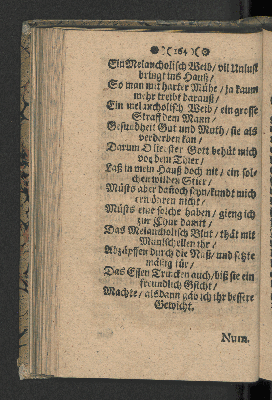 )( 164 )(
Ein Melancholisch Weib / vil Unlust
bringt ins Hauß /
So man mit harter Mühe / ja kaum
mehr treibt darauß /
Ein melancholisch Weib / ein grosse
Straff dem Mann /
Gesundheit Gut und Muth / sie als
verderben kan /
Darum O liebster Gott behüt mich
vor dem Thier /
Laß in mein Hauß doch nit / ein sol-
chen wilden Stier /
Müsts aber dañoch seyn / kundt mich
nicht /
Müsts eine solche haben / gieng ich
zur Thür
Das Melancholisch Blut / thät mit
Maulschellen ihr /
Abzäpffen durch die Naß / und setzte
mässig für /
Das Essen Trincken auch / biß sie ein
freundlich Gsicht /
Machte / alsdann gäb ich ihr bessere
Gewicht.
Num.